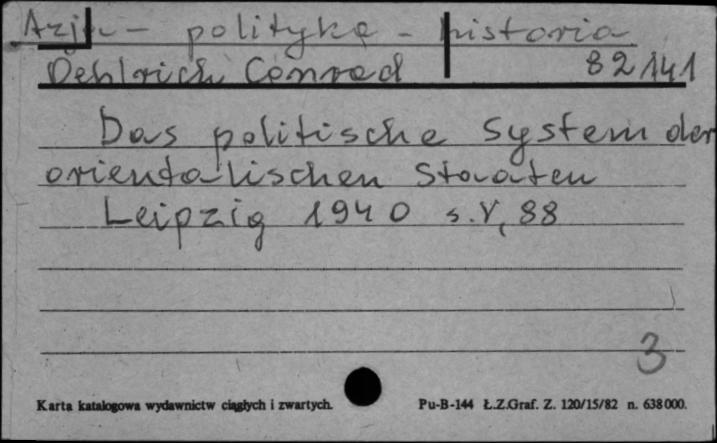 Azja - polityka - historia
Oehlrich Conrad 82141
Das politische System der
orientalischen Staaten
Leipzig 1940 s.V, 88
3
Karta katalogowa wydawnictw ciągłych i zwartych. Pu-B-144 Ł.Z.Graf. Z. 120/15/82 n. 638000.